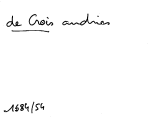 de Crois andries
1484/54